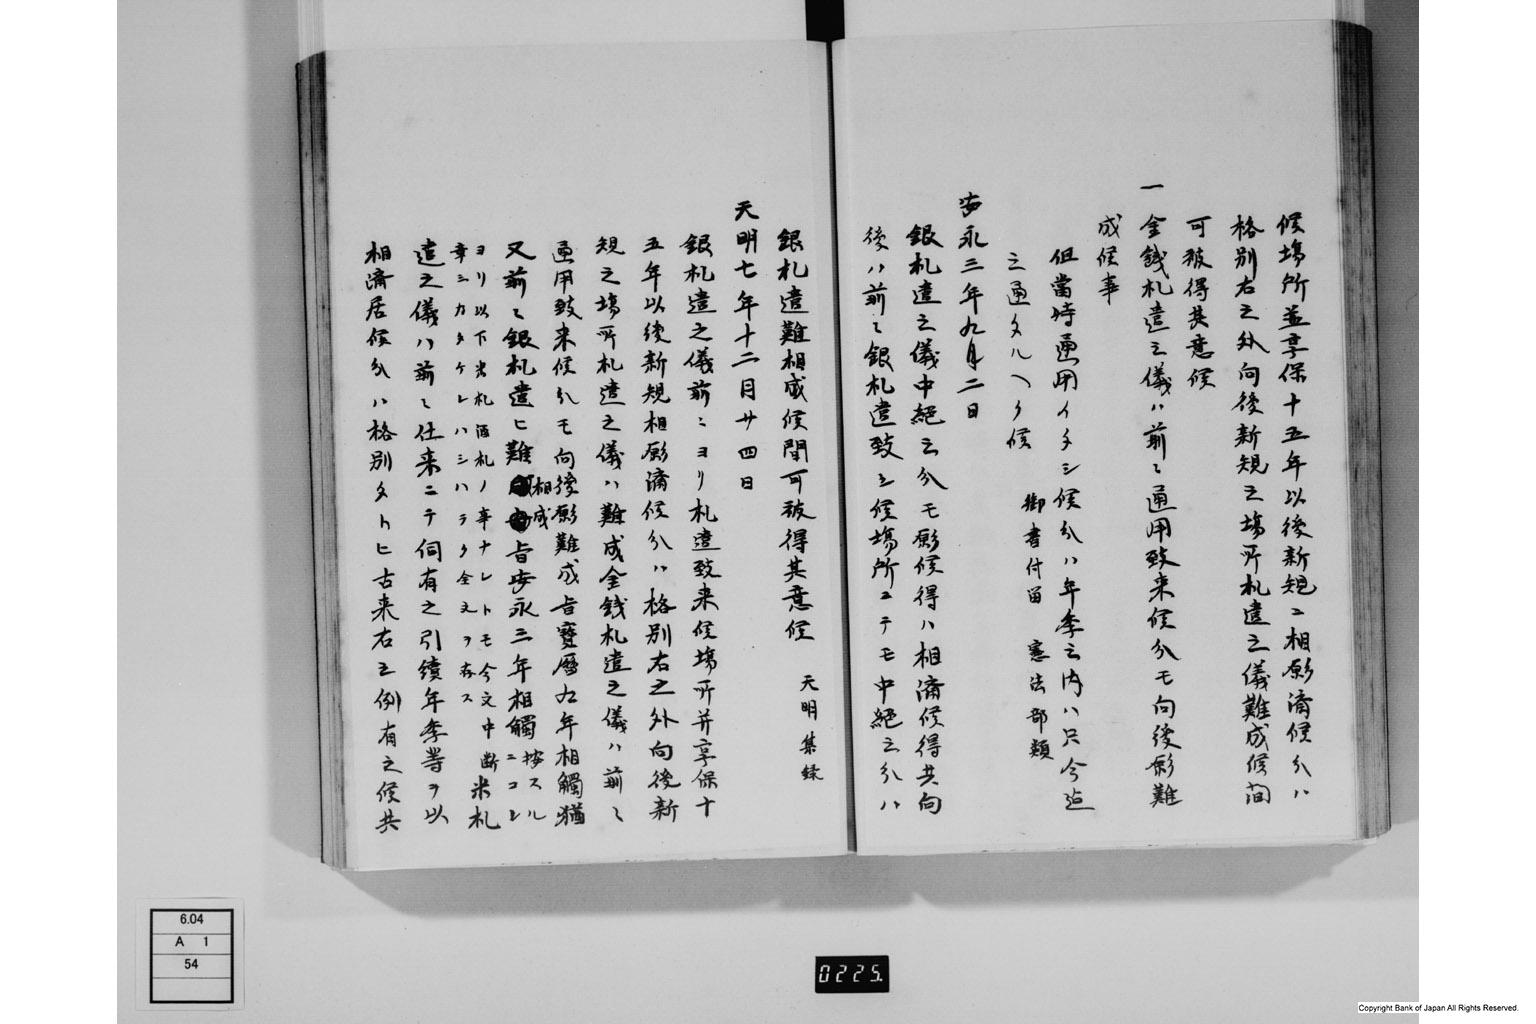 候場所並享保十五年以後新規ニ相願済候分ハ
格別右之外向後新規之場所札遣之儀難成候間
可被得其意候
一金銭札遣之儀ハ前々通用致来候分モ向後願難
成候事
但當時通用イタシ候分ハ年季之内ハ只今迠
之通タルヘク候
御書付留 憲法部類
安永三年九月二日
銀札遣之儀中絶之分モ願候得ハ相済候得共向
後ハ前々銀札遣致シ候場所ニテモ中絶之分ハ
銀札遣難相成候間可被得其意候
天明集録
天明七年十二月廿四日
銀札遣之儀前々ヨリ札遣致来候場所并享保十
五年以後新規相願済候分ハ格別右之外向後新
規之場所札遣之儀ハ難成金銭札遣之儀ハ前々
通用致来候分モ向後願難成旨寶暦九年相觸猶
又前々銀札遣ヒ難相成旨安永三年相觸
按スルニコレ
ヨリ以下米札酒札ノ事ナレトモ今文中断米札
章シカタケレハシハラク全文ヲ存ス
遣之儀ハ前々仕来ニテ伺有之引續年季等ヲ以
相済居候分ハ格別タトヒ古来右之例有之候共
6.04
A 1
54
0225.
Copyright Bank of Japan All Rights Reserved.